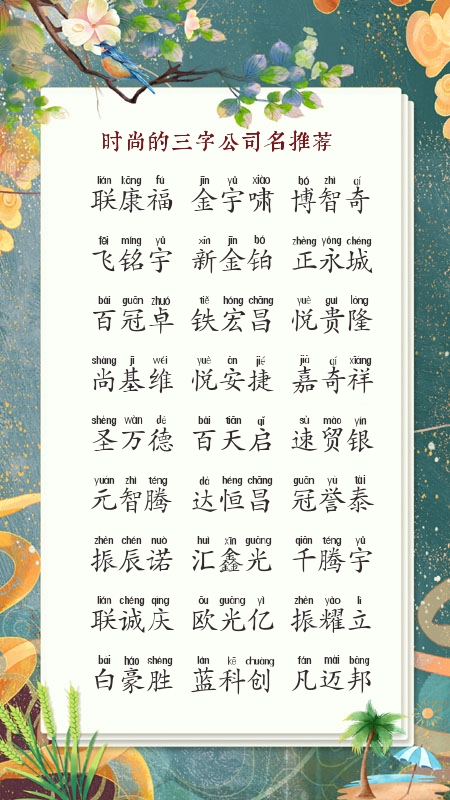 时尚的三字公司名推荐
lián kāng fú jīn yǔ xiào bó zhì qí
联康福 金宇啸 博智奇
fēi míng yǔ xīn jīn bó zhèng yǒng chéng
飞铭宇 新金铂 正永城
bǎi guān zhuó tiě hóng chāng yuè guì lóng
百冠卓 铁宏昌 悦贵隆
shàng jī wéi yuè ān jié jiā qí xiáng
尚基维 悦安捷 嘉奇祥
shèng wàn dé bǎi tiān qǐ sù mào yín
圣万德 百天启 速贸银
yuán zhì téng dá héng chāng guān yù tài
元智腾 达恒昌 冠誉泰
zhèn chén nuò huì xīn guāng qiān téng yǔ
振辰诺 汇鑫光 千腾宇
lián chéng qìng ōu guāng yì zhèn yào lì
联诚庆 欧光亿 振耀立
bái háo shèng lán kē chuàng fán mài bāng
白豪胜 蓝科创 凡迈邦